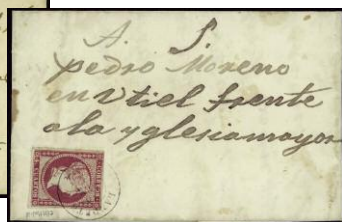 A. S.
pedro Moreno
en Utiel frente
ala yglesia mayor